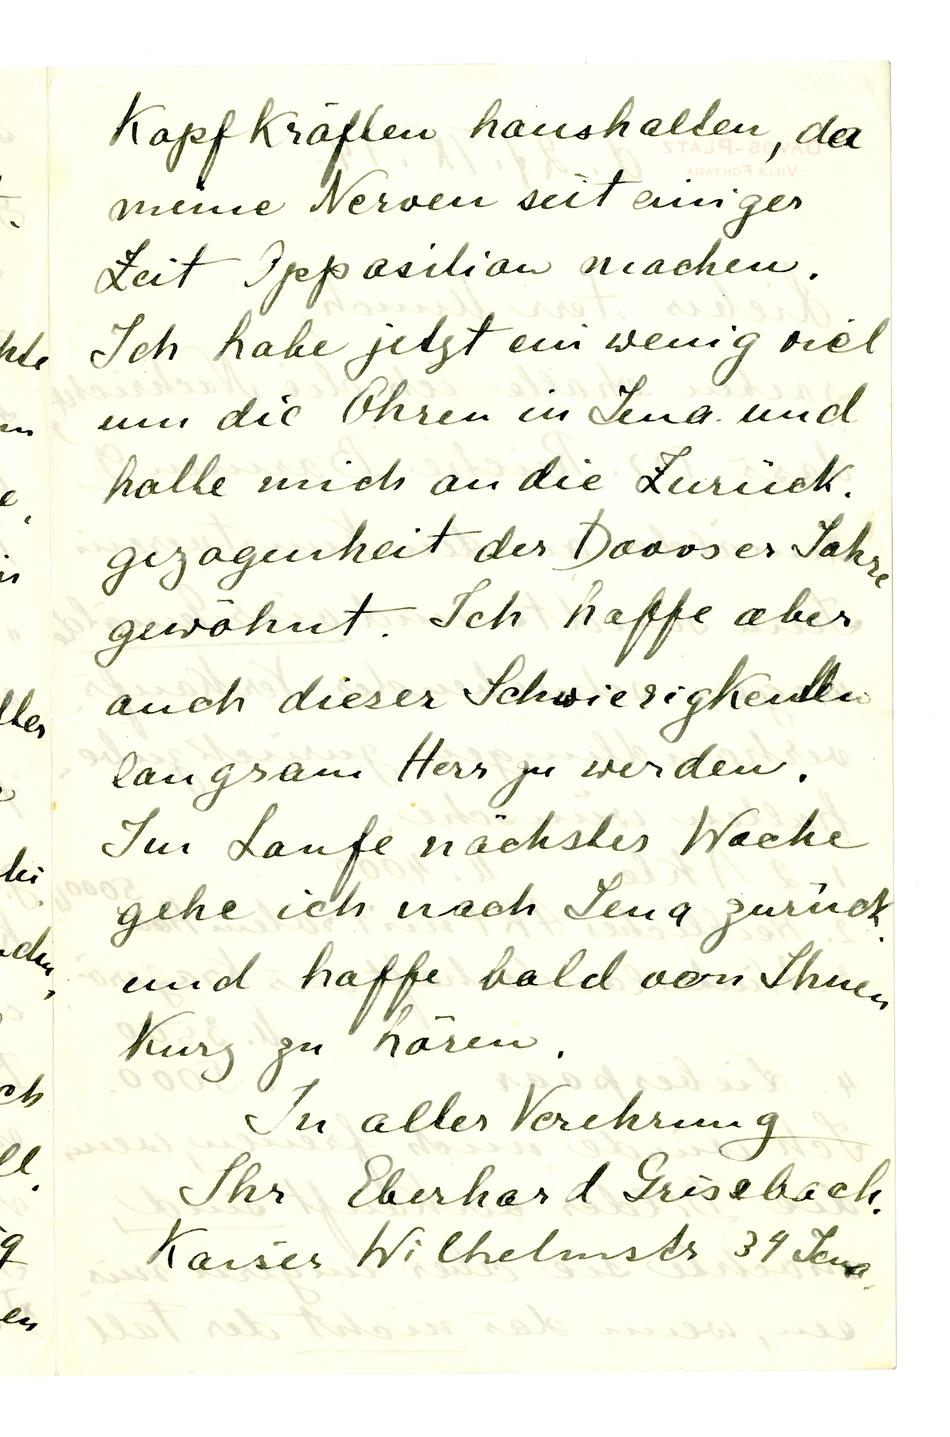 Kopfkräften haushalten, da
meine Nerven seit einiger
Zeit Opposition machen.
Ich habe jetzt ein wenig viel
um die Ohren in Jena und
hatte mich an die Zurück-
gezogenheit der Davoser Jahre
gewöhnt. Ich hoffe aber
auch dieser Schwierigkeiten
langsam Herr zu werden.
Im Laufe nächster Woche
gehe ich nach Jena zurück
und hoffe bald von Ihnen
kurz zu hören.
In aller Verehrung
Ihr Eberhard Grisebach.
Kaiser Wilhelmstr 34 Jena.